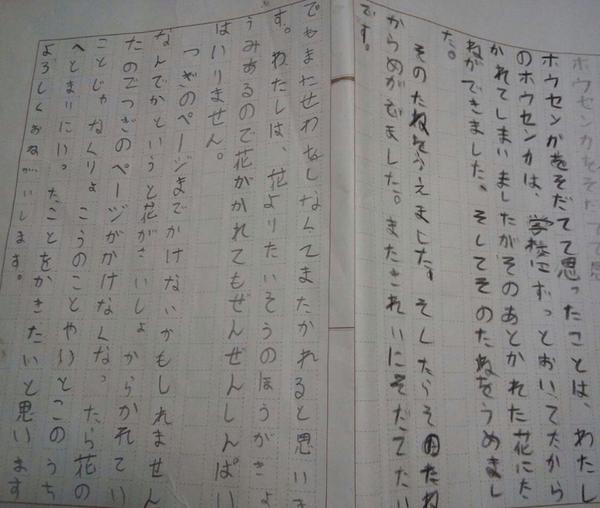 ホウセンカをそだてて思
ホウセンカをそだてて思ったことは、わたし
のホウセンカは、学校にずっとおいてたから
かれてしまいましたがそのあとかれた花にた
ねができました。そしてそのたねをうめまし
た。
そのたねをうえました。そしたらそのたね
からめがでました。またきれいにそだてたい
です。
でもまたせわをしなくてまたかれると思いま
す。わたしは、花よりたいそうのほうがきょ
うみあるので花がかれてもぜんぜんしんぱい
はいりません。
つぎのページまでかけないかもしれません
なんでかというと花がさいしょからかれてい
たのでつぎのページがかけなくなったら花の
ことじゃなくりょこうのことやいとこのうち
へとまりにいったことをかきたいと思います
よろしくおねがいします。